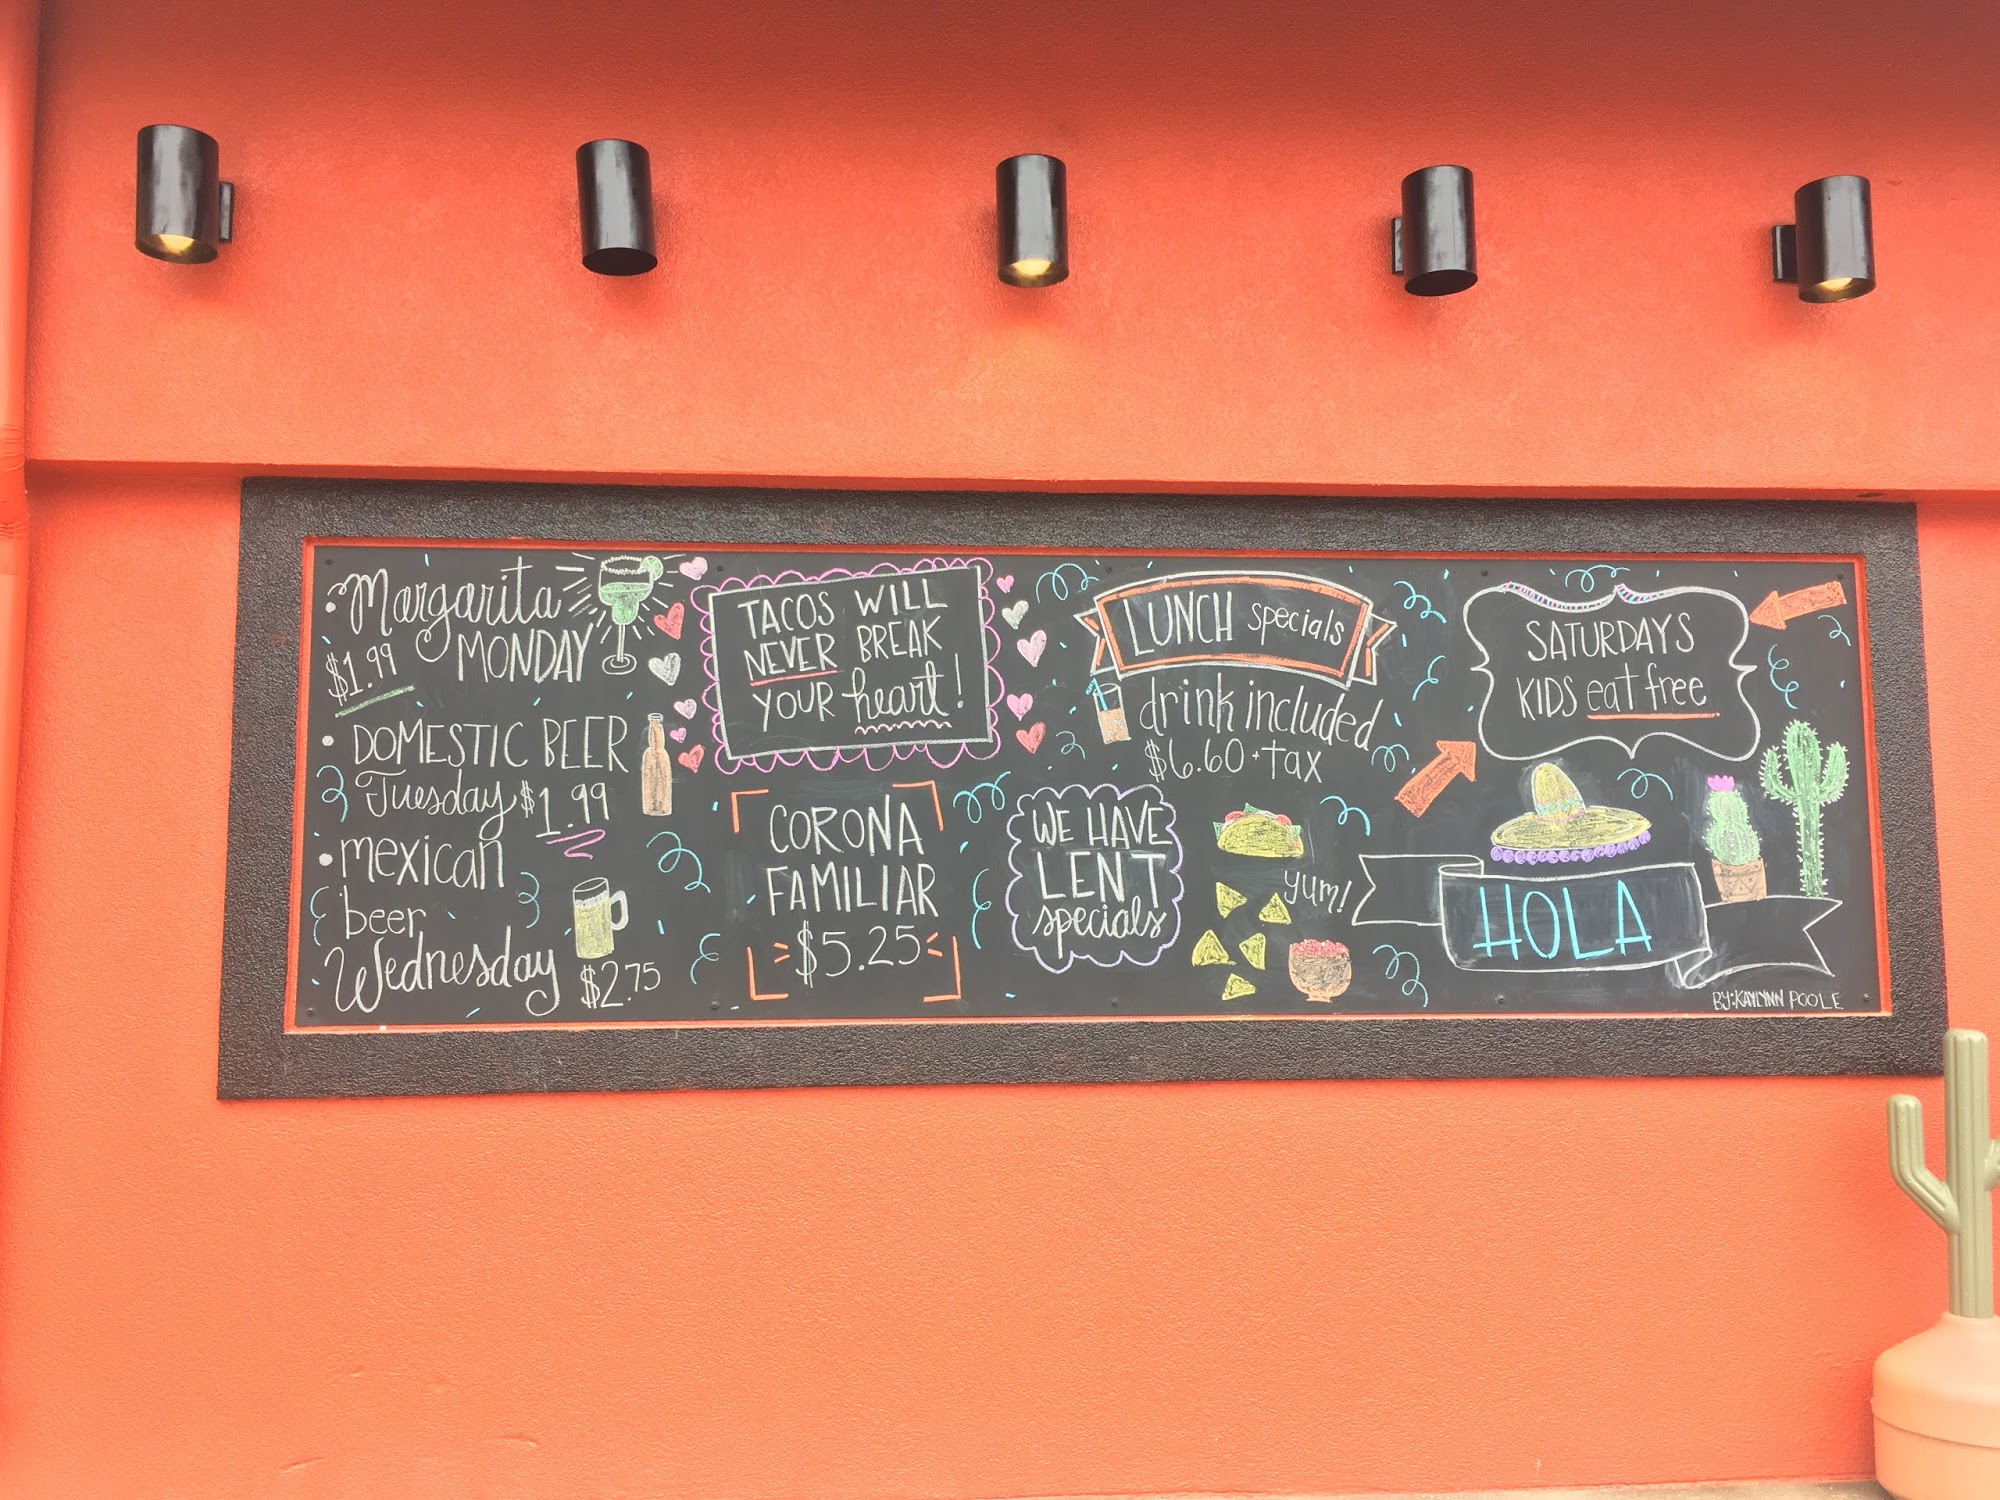 • Margarita
MONDAY
$1.99
• DOMESTIC BEER
Tuesday $1.99
• mexican
beer
Wednesday
$2.75
TACOS WILL
NEVER BREAK
YOUR heart!
CORONA
FAMILIAR
$5.25
LUNCH specials
drink included
$6.60 + tax
WE HAVE
LENT
specials
yum!
SATURDAYS
KIDS eat free
HOLA
BY: KAYLYNN POOLE